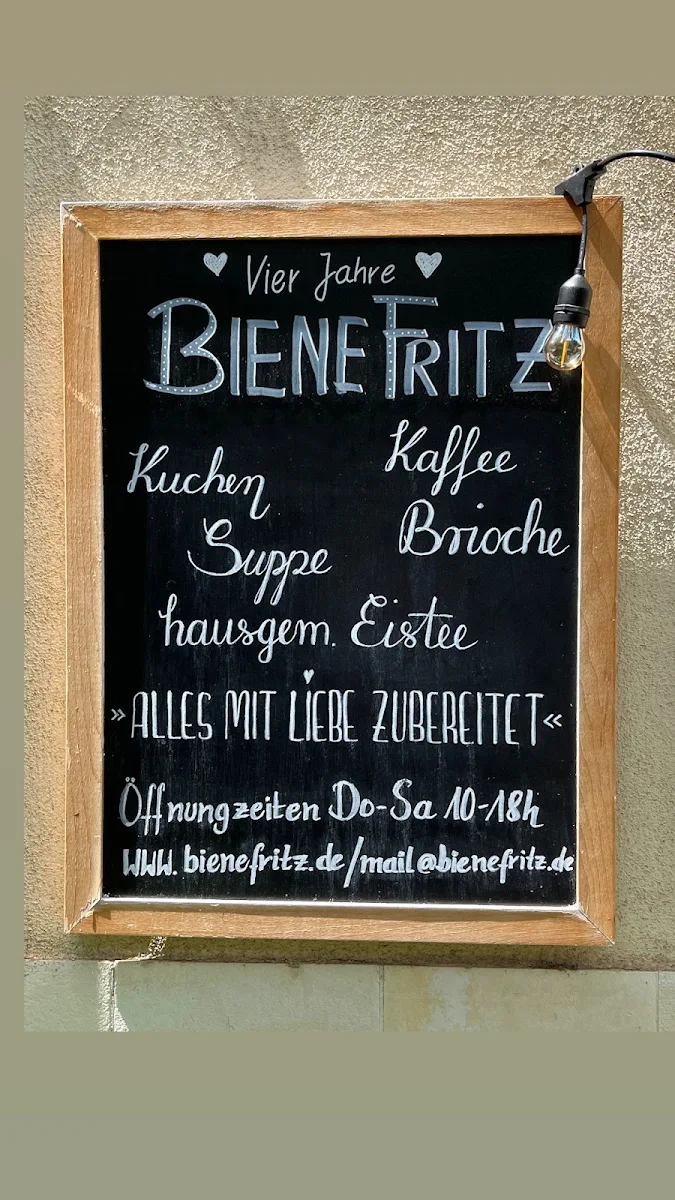 ♥ Vier Jahre ♥
BIENEFRITZ
Kuchen Kaffee
Suppe Brioche
hausgem. Eistee
»ALLES MIT LIEBE ZUBEREITET«
Öffnungzeiten Do-Sa 10-18h
www.bienefritz.de/mail@bienefritz.de